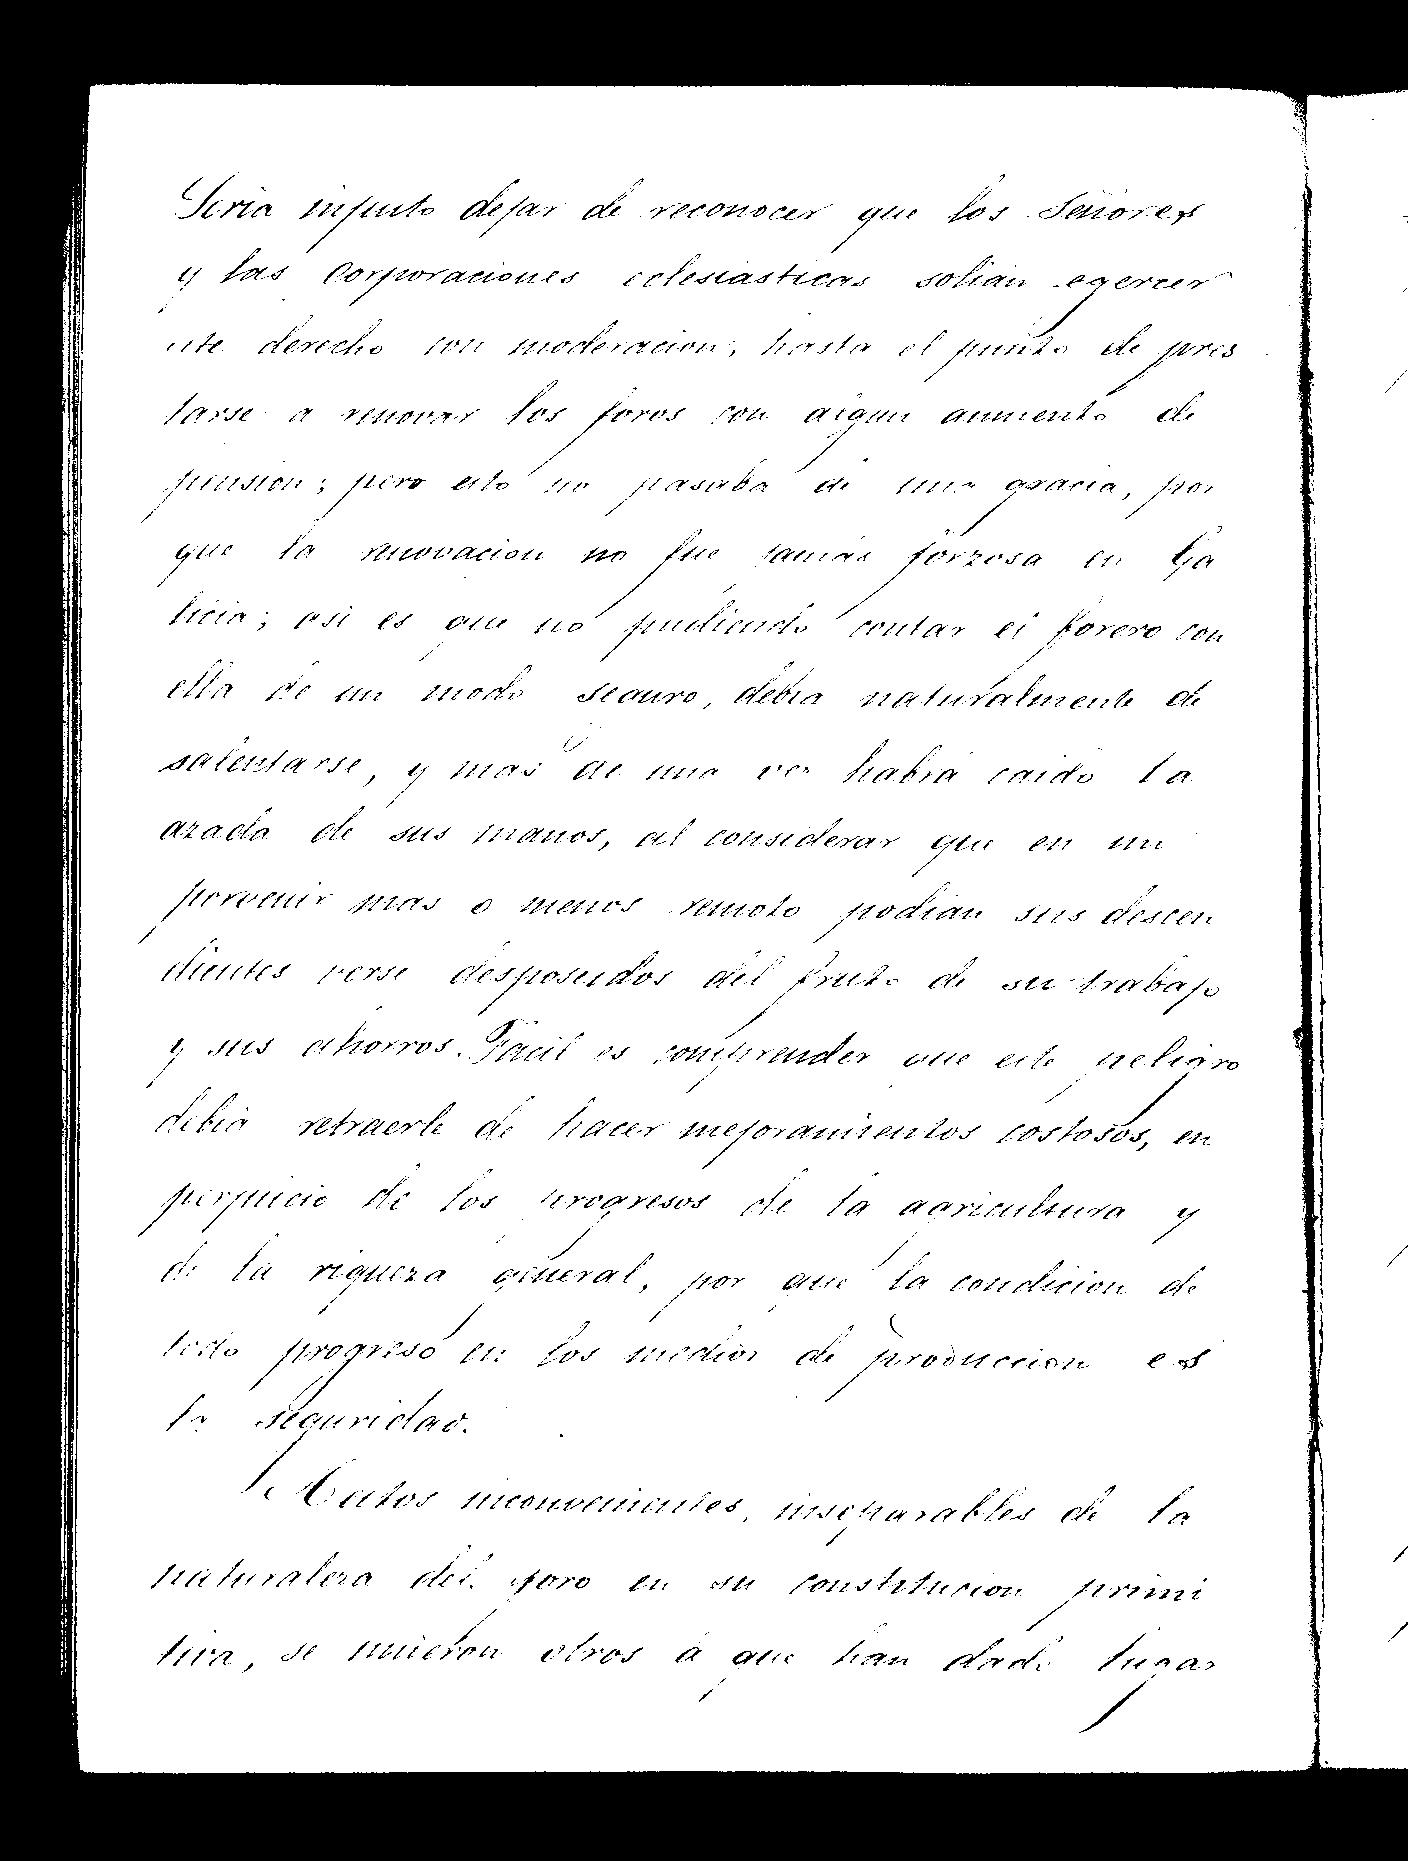 Seria injusto dejar de reconocer que los Señores
y las corporaciones eclesiásticas solian egercer
este derecho con moderacion, hasta el punto de pres
tarse a renovar los foros con algun aumento de
pension; pero esto no pasaba de una gracia, por
que la renovacion no fue jamás forzosa en Ga
licia; asi es que no pudiendo contar el forero con
ella de un modo seguro, debia naturalmente de
salentarse, y mas de una vez habrá caido la
azada de sus manos, al considerar que en un
porvenir mas o menos remoto podian sus descen
dientes verse desposeidos del fruto de su trabajo
y sus ahorros. Facil es comprender que este peligro
debia retraerle de hacer mejoramientos costosos, en
perjuicio de los progresos de la agricultura y
de la riqueza general, por que la condicion de
todo progreso en los medios de produccion es
la seguridad.
A estos inconvenientes, inseparables de la
naturaleza del foro en su constitucion primi
tiva, se unieron otros á que han dado lugar